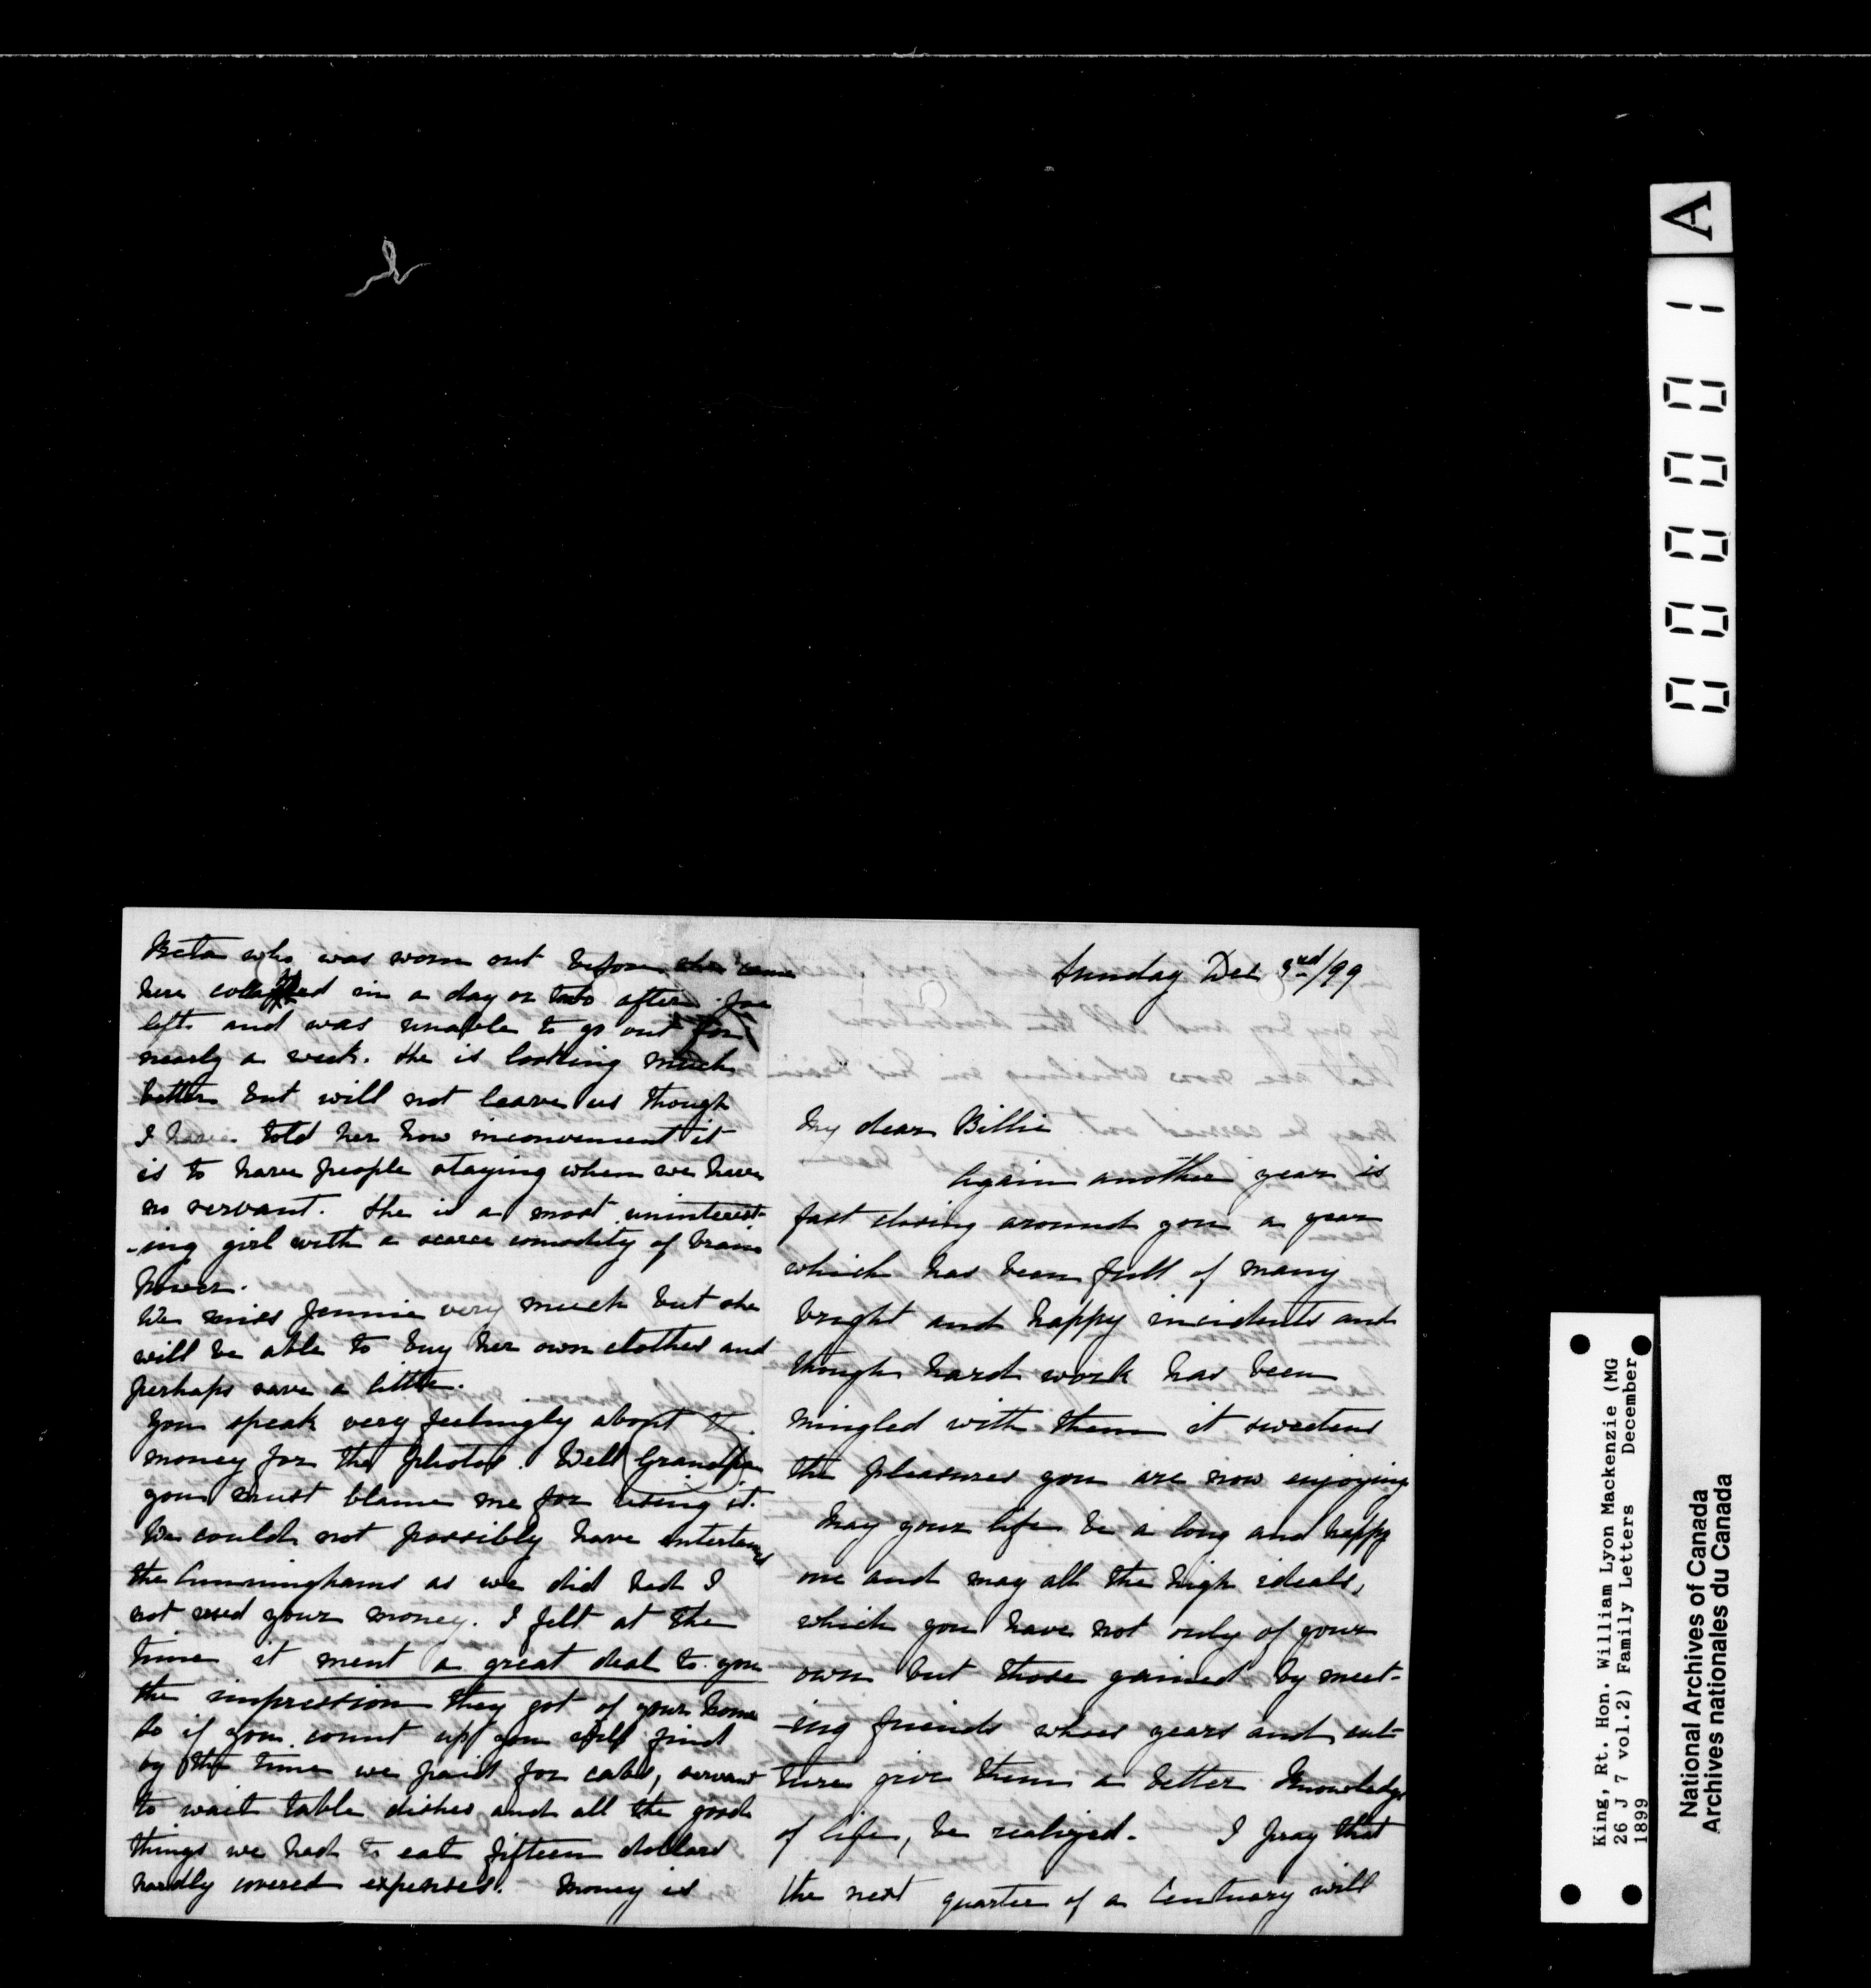 Sunday Dec 3rd/99
My dear Billie
Again another year is
fast closing around you a year
which has been full of many
bright and happy incidents and
though hard work has been
mingled with them it sweetens
the pleasures you are now enjoying
May your life be a long and happy
one and may all the high ideals,
which you have not only of your
own but those gained by meet-
-ing friends whoes years and cul-
ture give them a better knowledge
of life, be realized. I pray that
the next quarter of a Centuary will
Beta who was worn out before she came
here collapsed in a day or two after
left and was unable to go out for
nearly a week. She is looking much
better but will not leave us though
I have told her how inconvenient it
is to have people staying when we have
no servant. She is a most uninterest-
-ing girl with a scarce comodity of brain
power.
We miss Jennie very much but she
will be able to buy her own clothes and
perhaps save a little.
You speak very feelingly about
money for the photos. Well Grandpa
you must blame me for using it.
We could not possibly have entertained
the Cunninghams as we did had I
not used your money. I felt at the
time it ment a great deal to you
the impression they got of your home
So if you count up you will find
by the time we paid for cabs, servant
to wait table dishes and all the good
things we had to eat fifteen dollars
hardly covered expenses. Money is
A
000001
King, Rt. Hon. William Lyon Mackenzie (MG
26 J 7 vol.2) Family Letters December
1899
National Archives of Canada
Archives nationales du Canada